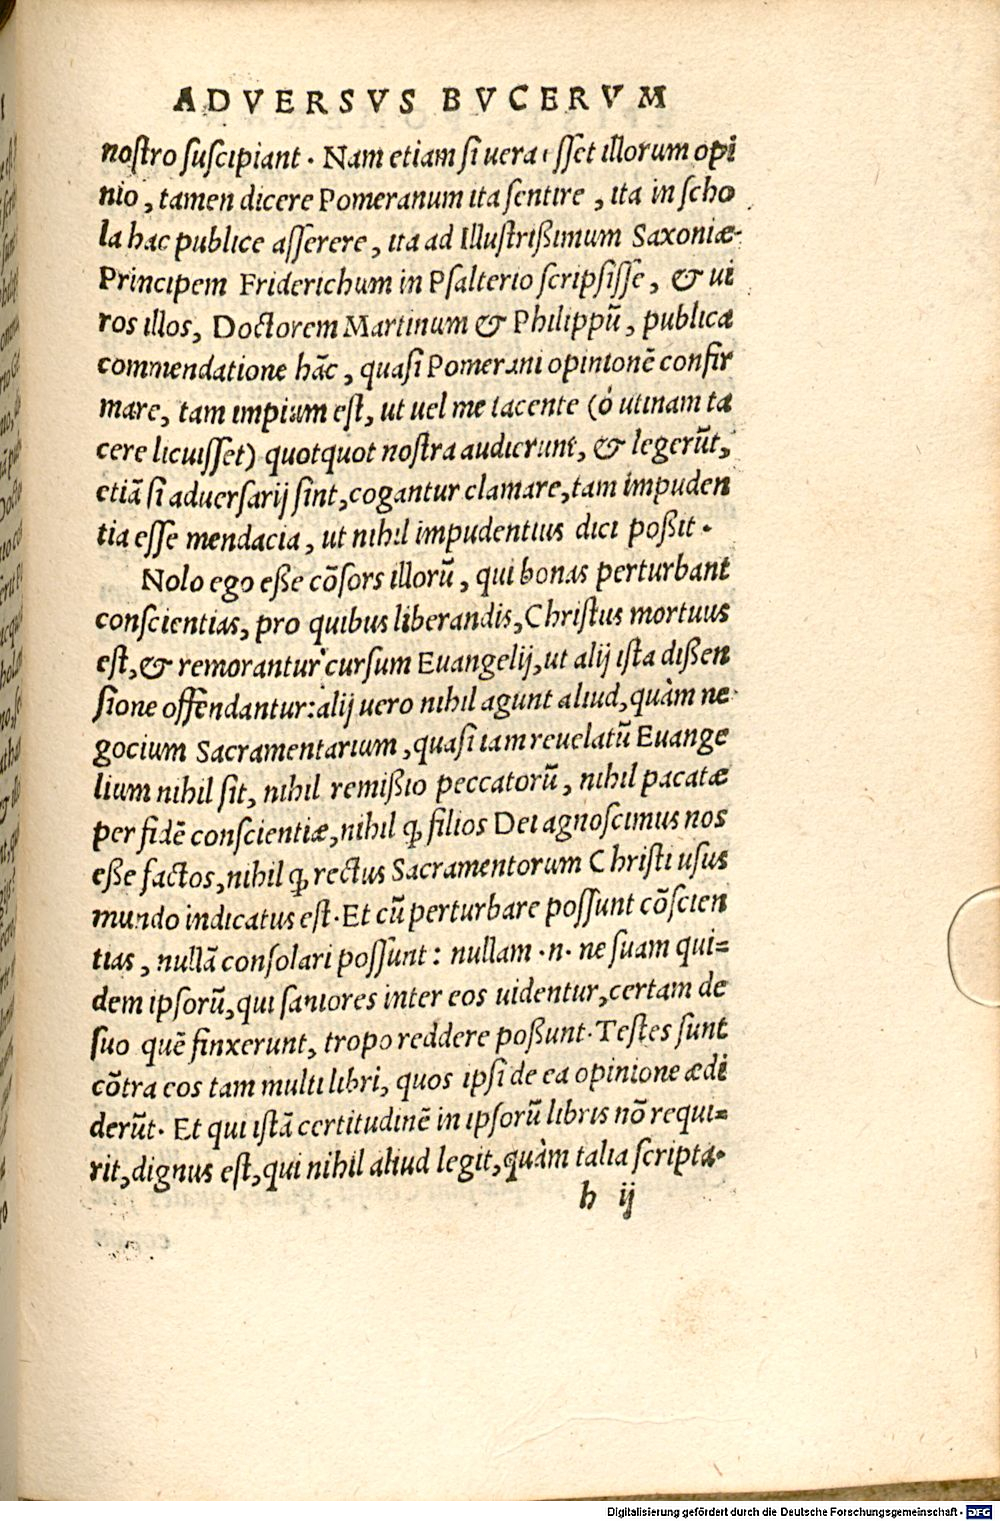 ADVERSVS BVCERVM
nostro suscipiant. Nam etiam si vera esset illorum opi
nio, tamen dicere Pomeranum ita sentire, ita in scho
la hac publice asserere, ita ad Illustrißimum Saxoniæ
Principem Friderichum in Psalterio scripsisse, & ui
ros illos, Doctorem Martinum & Philippũ, publica
commendatione hãc, quasi Pomerani opinionẽ confir
mare, tam impium est, ut uel me tacente (ó utinam ta
cere licuisset) quotquot nostra audierunt, & legerũt,
etiã si adversarij sint, cogantur clamare, tam impuden
tia esse mendacia, ut nihil impudentius dici poßit.
Nolo ego eße cõsors illorũ, qui bonas perturbant
conscientias, pro quibus liberandis, Christus mortuus
est, & remorantur cursum Euangelij, ut alij ista dißen
sione offendantur: alij uero nihil agunt aliud, quàm ne
gocium Sacramentarium, quasi iam reuelatũ Euange
lium nihil sit, nihil remißio peccatorũ, nihil pacatæ
per fidẽ conscientiæ, nihil ꝙ filios Dei agnoscimus nos
eße factos, nihil ꝙ rectus Sacramentorum Christi usus
mundo indicatus est. Et cũ perturbare possunt cõscien
tias, nullã consolari possunt: nullam .n. ne suam qui=
dem ipsorũ, qui saniores inter eos uidentur, certam de
suo quẽ finxerunt, tropo reddere poßunt. Testes sunt
cõtra eos tam multi libri, quos ipsi de ea opinione ædi
derũt. Et qui istã certitudinẽ in ipsorũ libris nõ requi=
rit, dignus est, qui nihil aliud legit, quàm talia scripta.
h ij
Digitalisierung gefördert durch die Deutsche Forschungsgemeinschaft - DFG